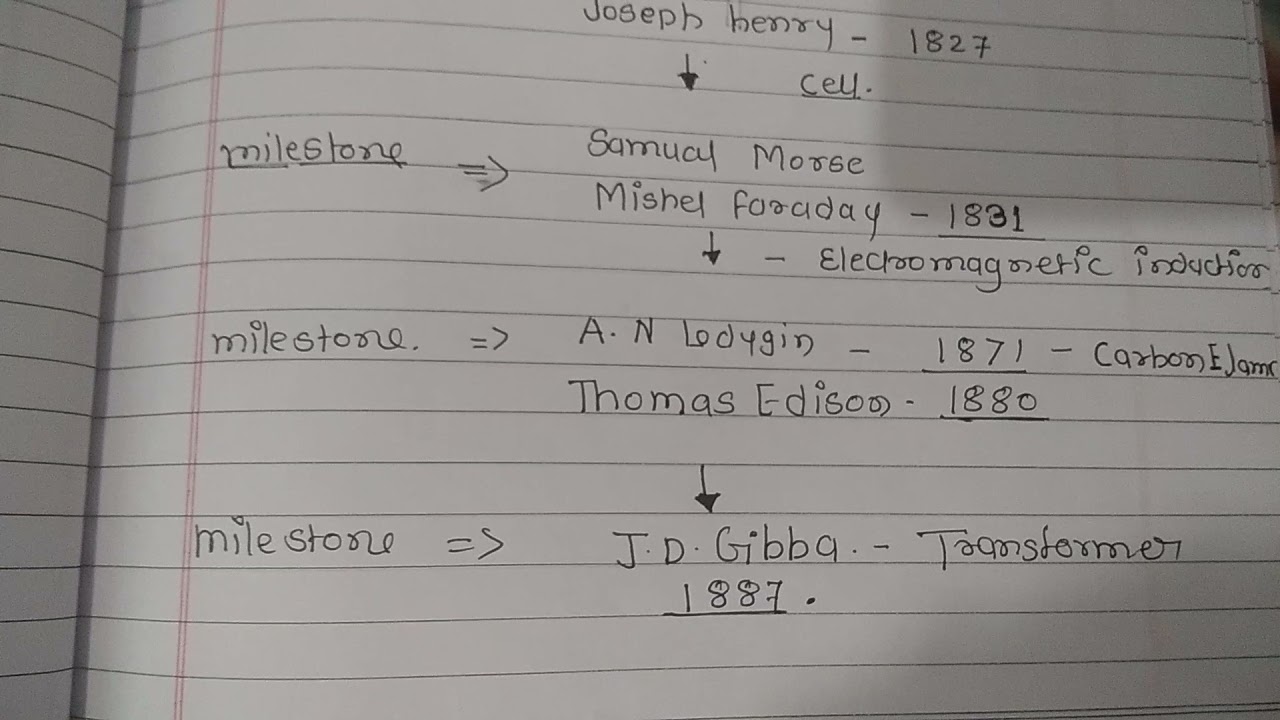 Joseph henry - 1827
Cell.
milestone => Samual Morse
Mishel faraday - 1831
- Electromagnetic induction
milestone. => A. N Lodygin - 1871 - Carbon
Thomas Edison - 1880
milestone => J. D. Gibba. - Transformer
1887.